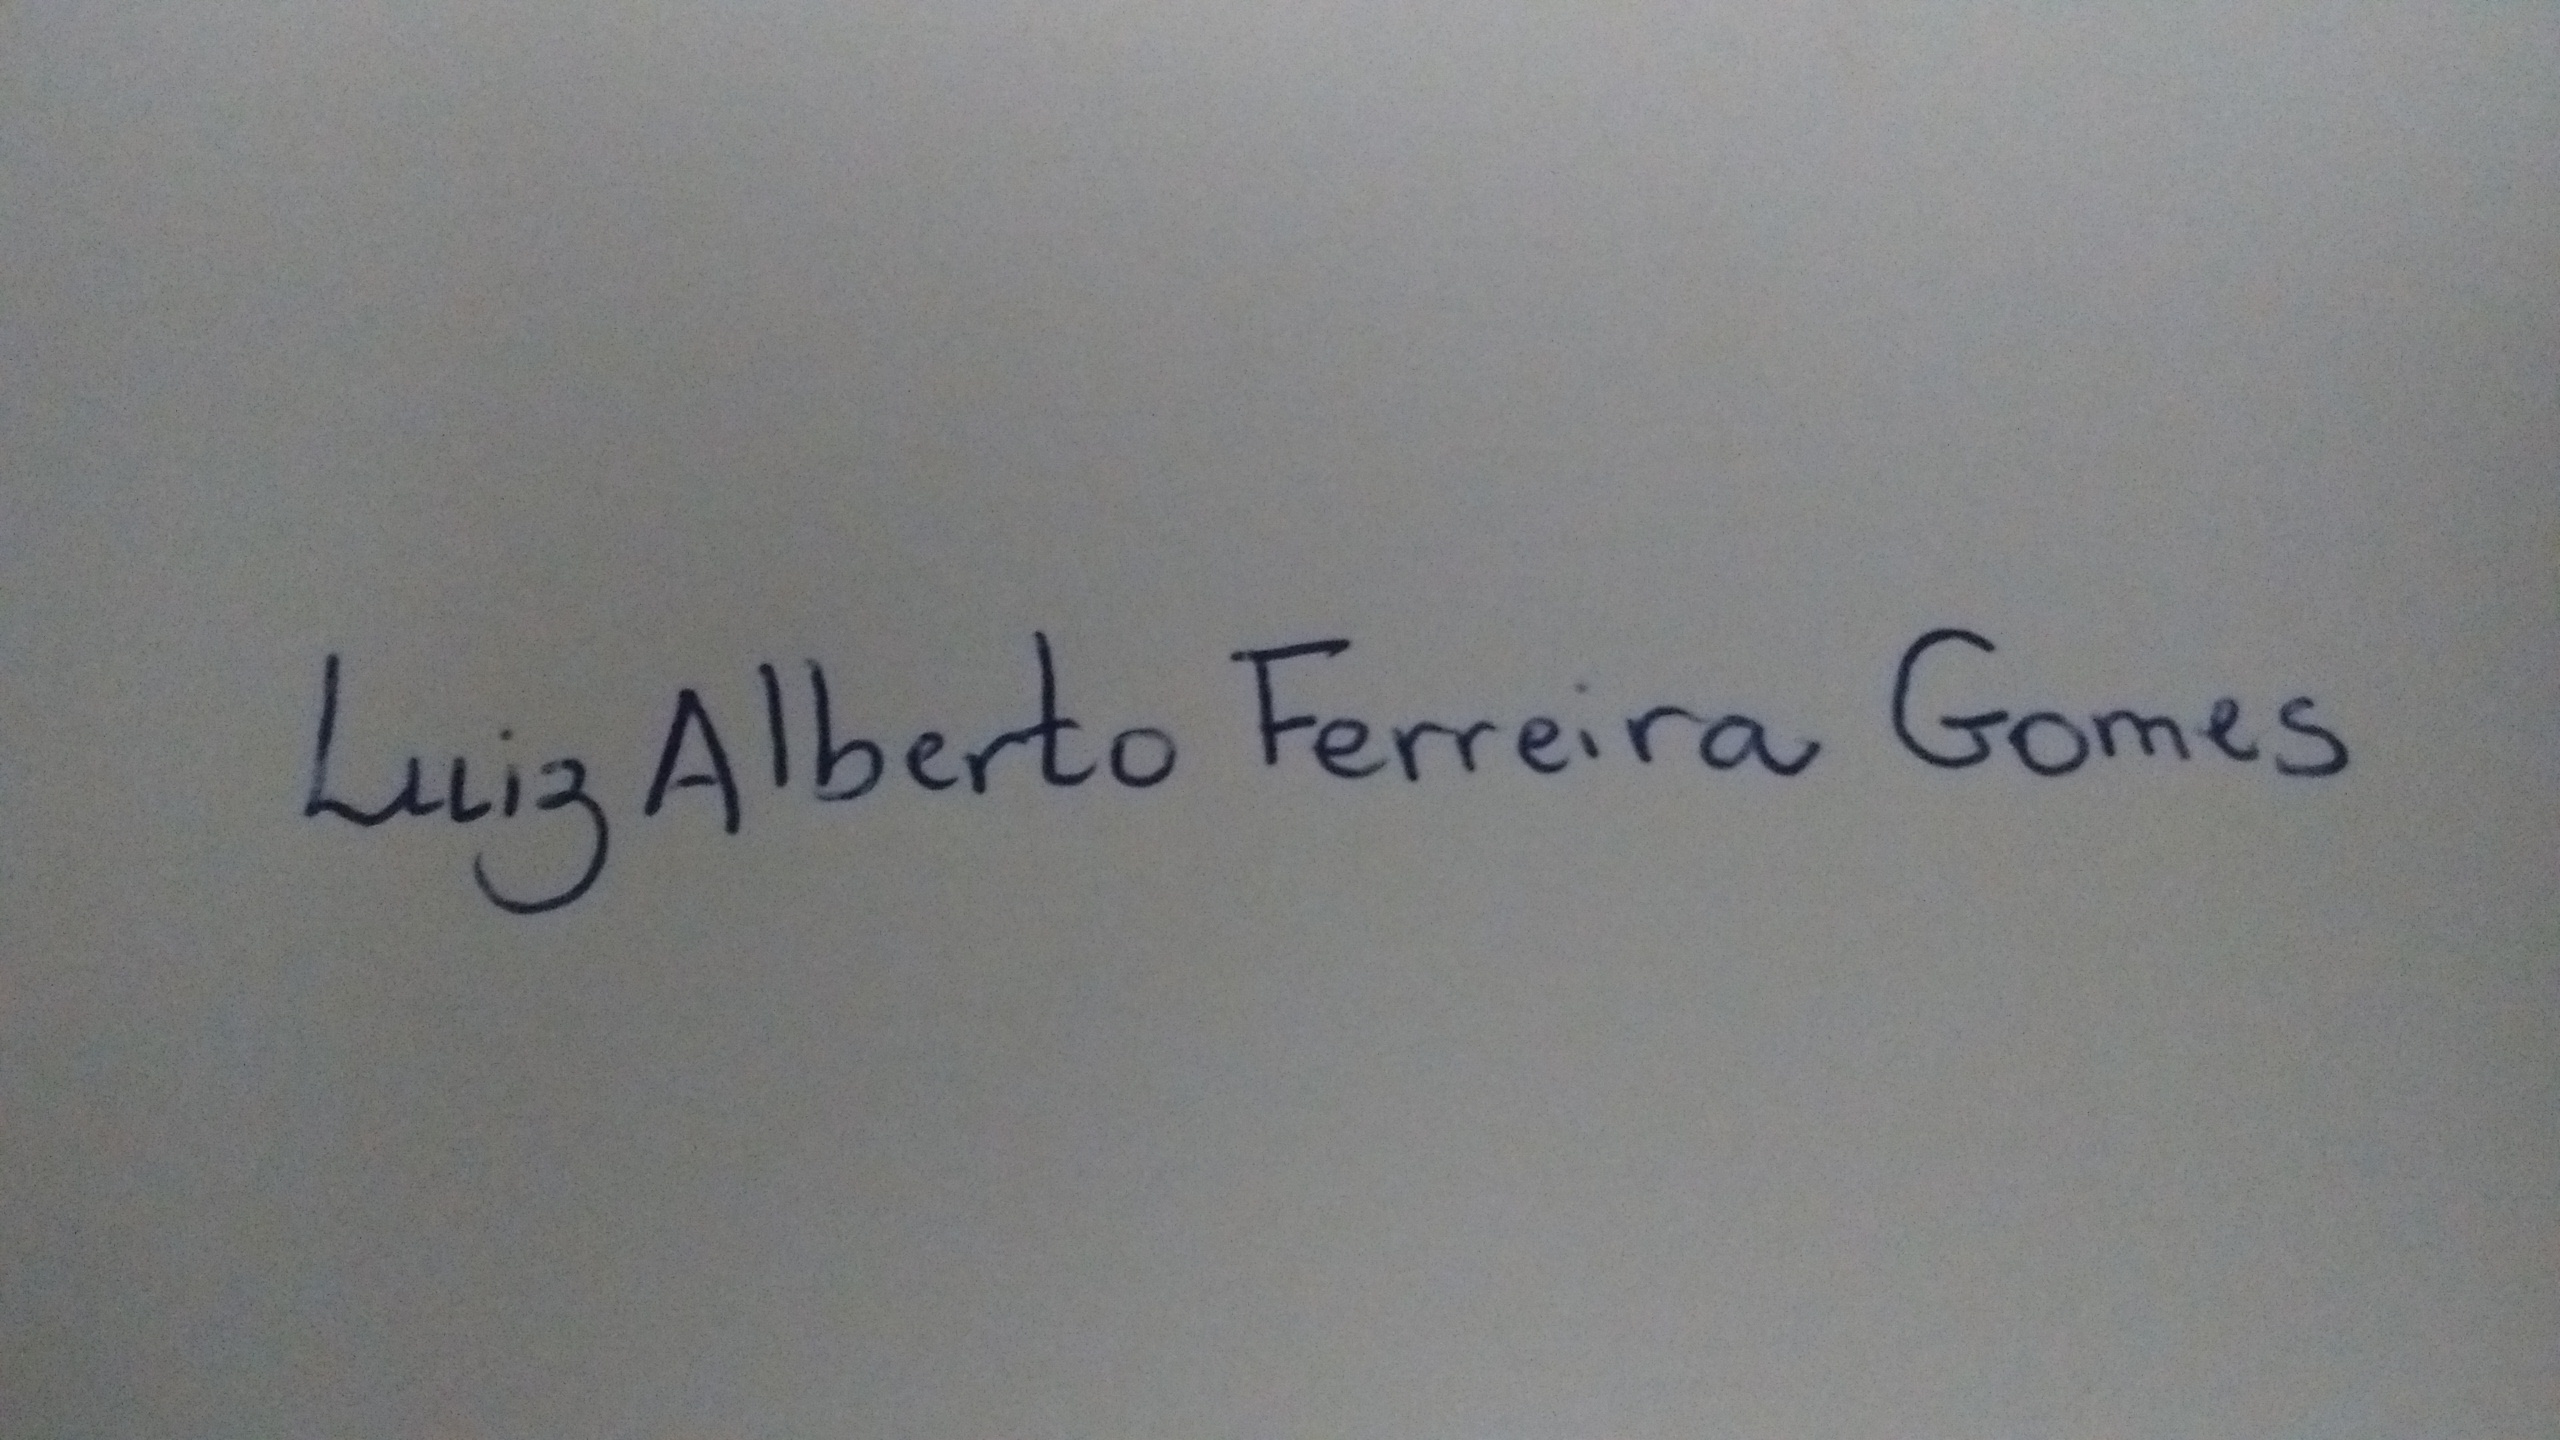 Luiz Alberto Ferreira Gomes